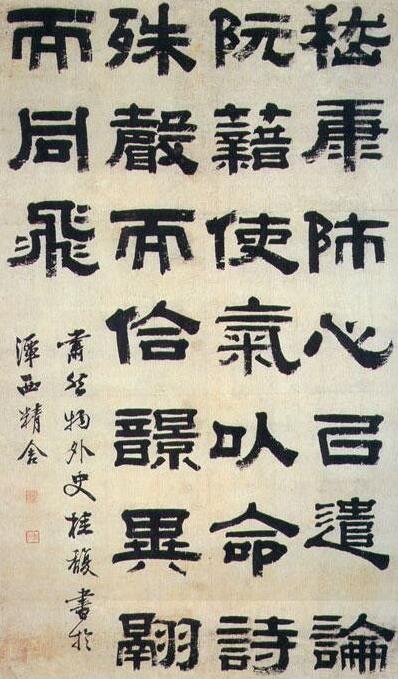 嵇康師心㠯遣論
阮藉使氣以命詩
殊聲而佮異翮
而同飛
肅然物外史桂馥書於
潭西精舍